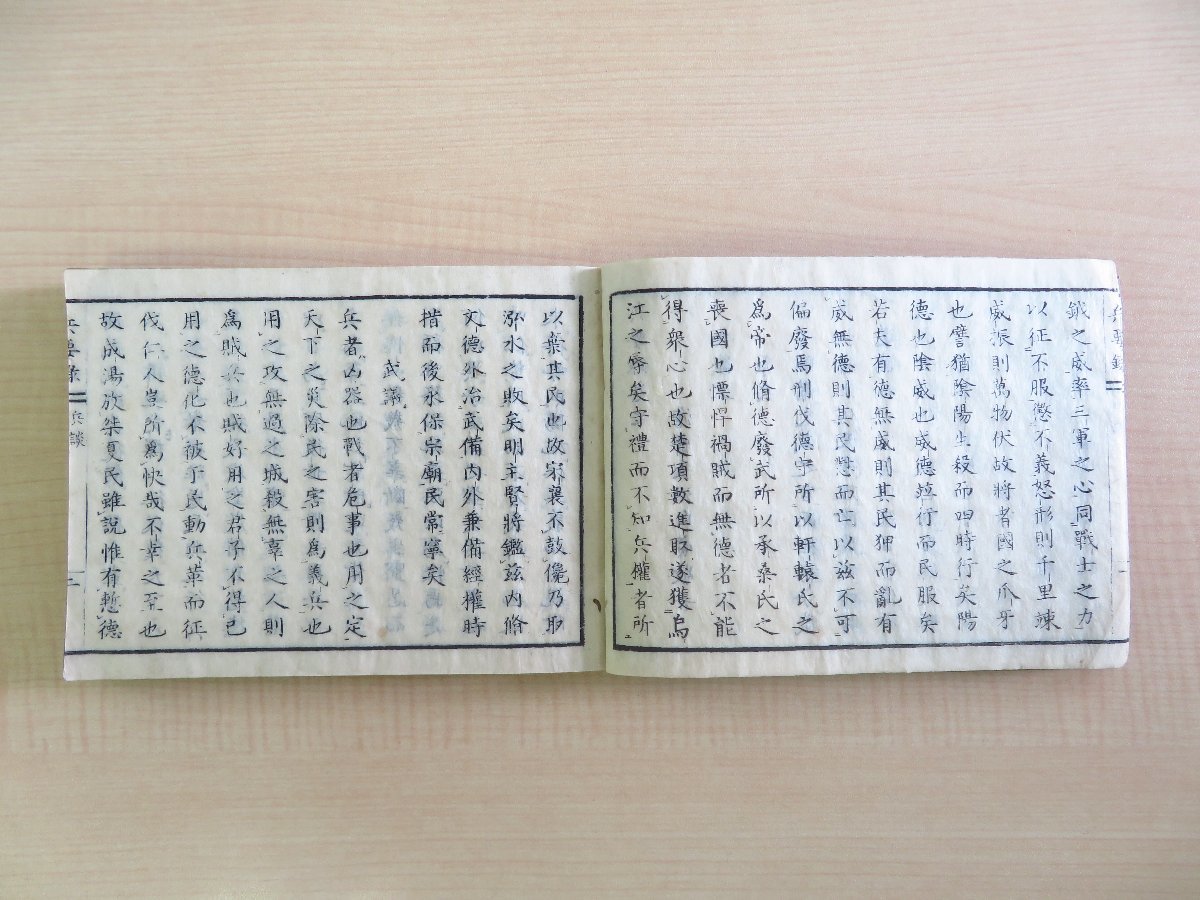 鉞之威率三軍之心同戰士之力
以征不服懲不義怒形則千里竦
威振則萬物伏故將者國之爪牙
也譬猶陰陽生殺而四時行矣陽
德也陰威也威德竝行而民服矣
若夫有德無威則其民狎而亂有
威無德則其民愁而亡以茲不可
偏廢焉刑伐德守所以軒轅氏之
爲帝也脩德廢武所以承桑氏之
喪國也慓悍禍賊而無德者不能
得衆心也故楚項數進取遂獲烏
江之辱矣守禮而不知兵權者所
以棄其民也故宋襄不鼓儳乃取
泓水之敗矣明主賢將鑑茲內脩
文德外治武備內外兼備經權時
措而後永保宗廟民常寧矣
武議
兵者凶器也戰者危事也用之定
天下之災除民之害則爲義兵也
用之攻無過之城殺無辜之人則
爲賊兵也賊好用之君子不得已
用之德化不被于民動兵革而征
伐仁人豈所爲快哉不幸之至也
故成湯放桀夏民雖說惟有慙德
兵要錄
兵談